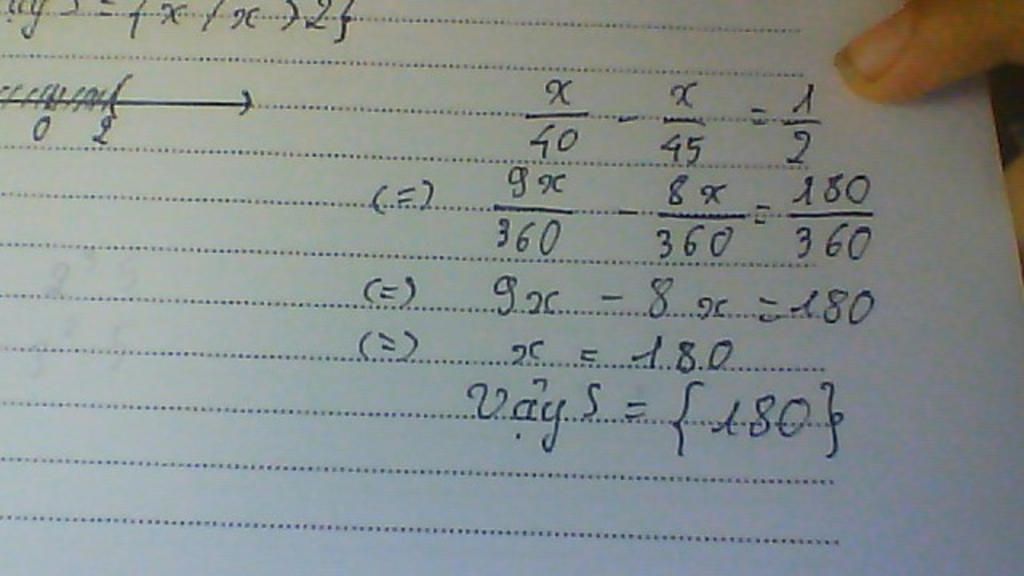 Vậy S = { x / x > 2}
0 2
x/40 - x/45 = 1/2
(=) 9x/360 - 8x/360 = 180/360
(=) 9x - 8x = 180
(=) x = 180
Vậy S = {180}